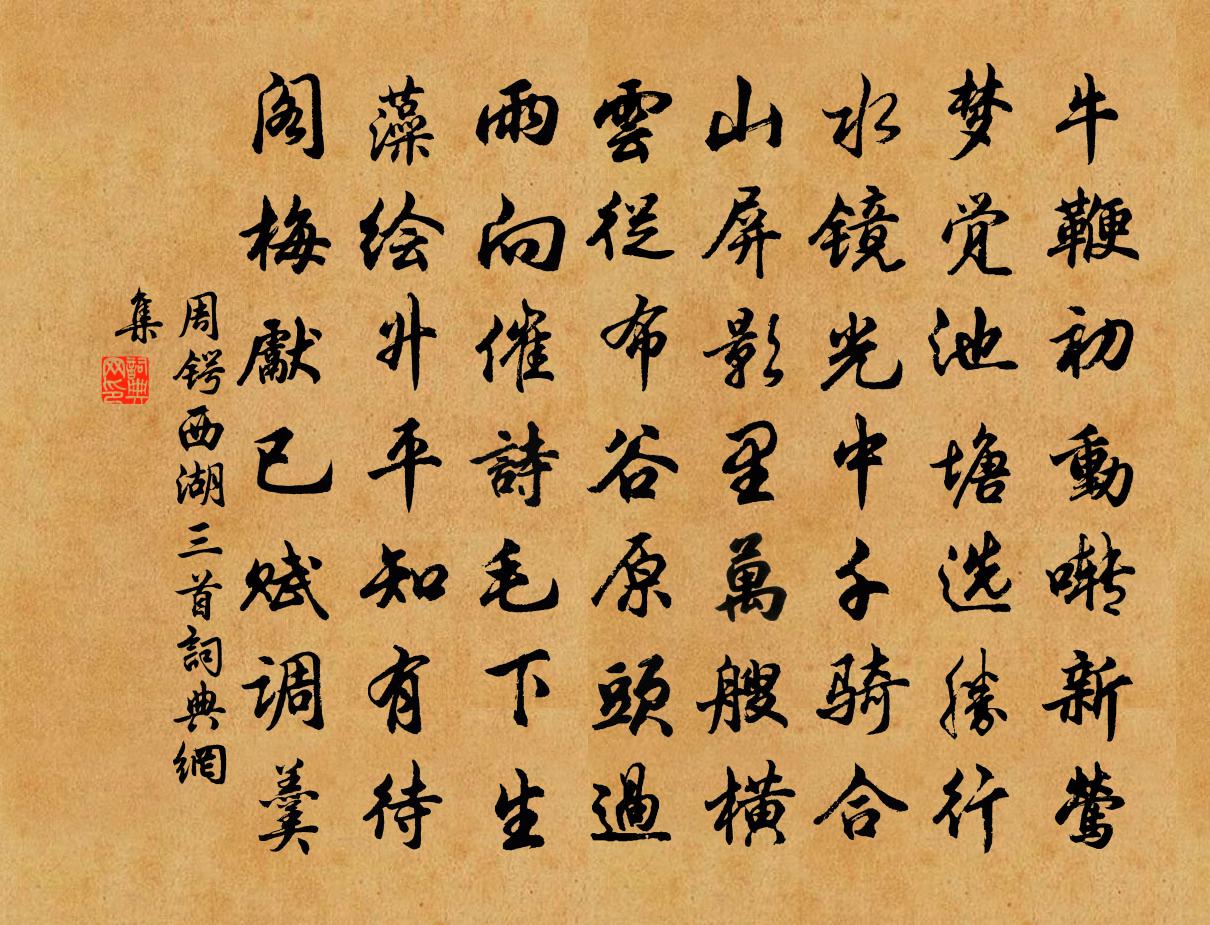 牛鞭初動啭新莺
梦觉池塘选勝行
水镜光中千骑合
山屏影里萬艘横
雲從布谷原頭過
雨向催詩毛下生
藻绘升平知有待
阁梅獻已赋调羹
周锷西湖三首詞典網
集
詞典网印